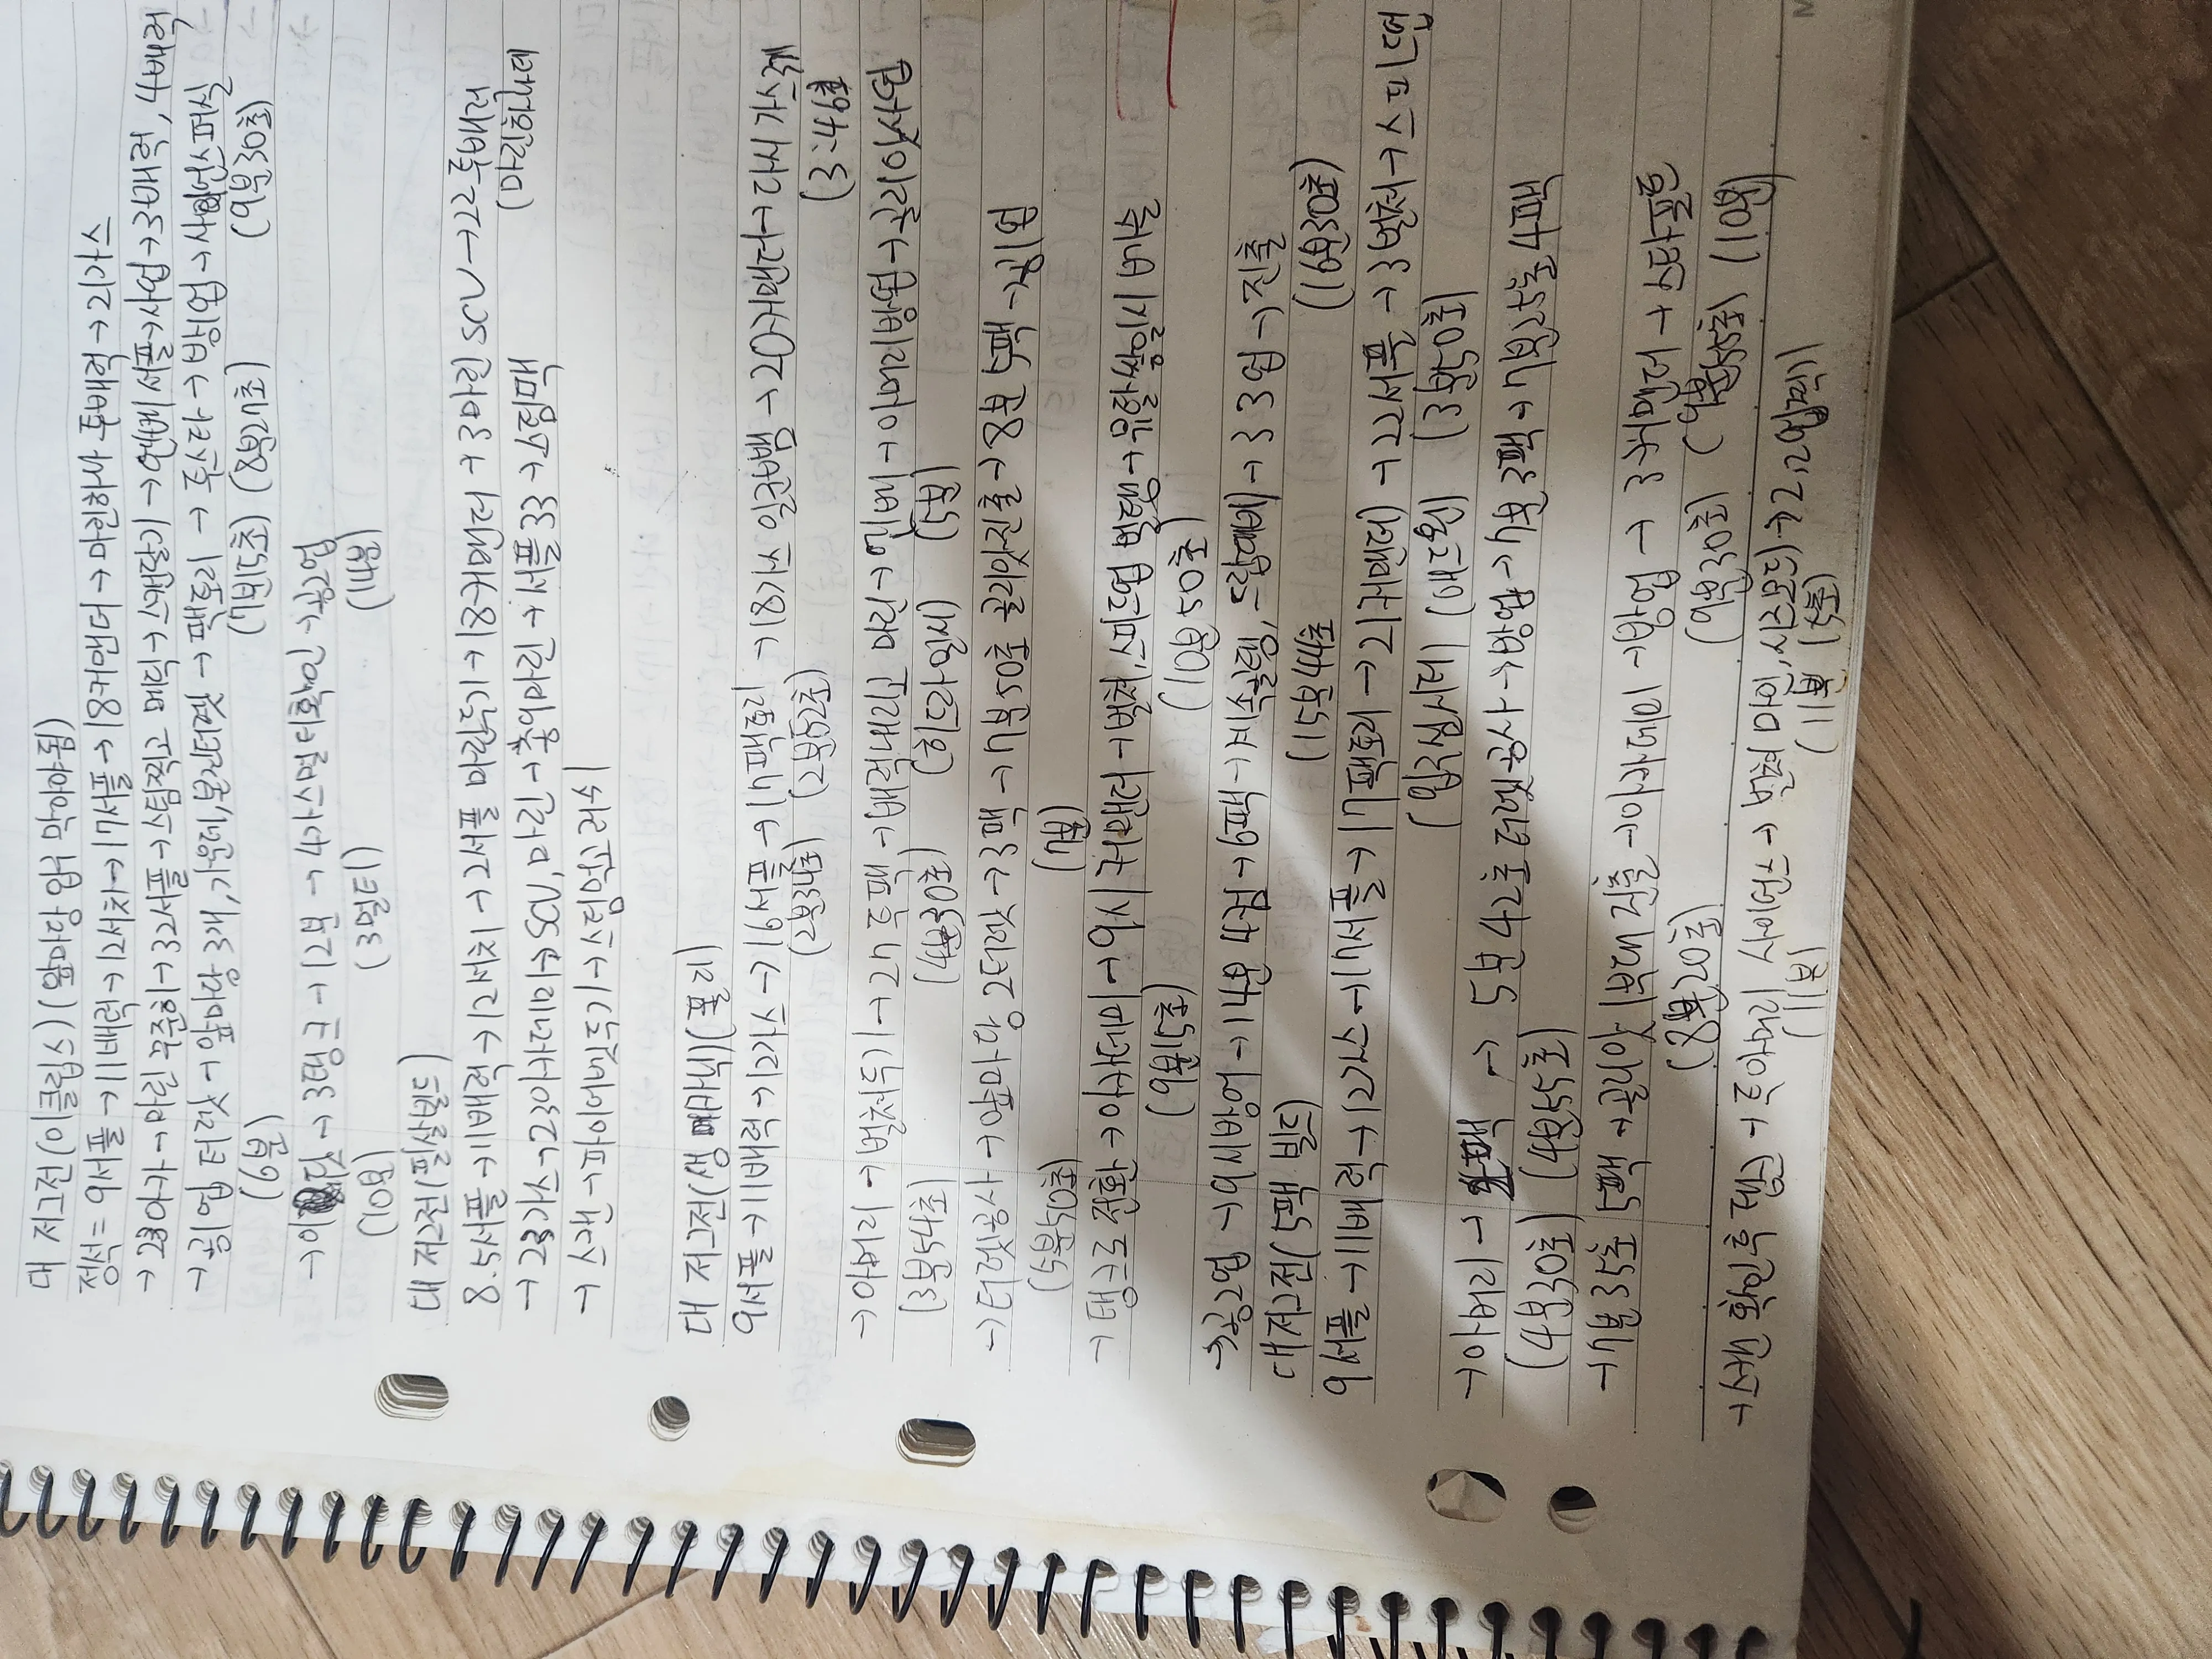 대 저그전(이클립스)(앞마당 입구 막아야됨)
정석= 9서플→11배럭→12서치→17서플→18커맨더→마린하사 투배럭→2가스
→23아카→마린 꾸준히→32서플→스팀찍고 메딕→스캔달기→엔베 서플→사업→3배럭, 4배럭
→공1업 터렛→앞마당 3개, 가운데, 본진터렛→팩토리→투스타→방1업→사이언스퍼실
(6분) (7분15초) (8분27초) (9분30초)
→3탱크→12분→4가스멀티확인→공2업
(10분) (3멀티) (14분)
대 저그전(필살빌드)
8.5서플→11배럭→12서치→2서플 마린두기→18커맨더+3마린 SCV→22투배럭
(마린하사데
→23가스→23아카데미 SCV, 마린→충원마린+서플33→스팀팩
→스캔→파이어뱃두기→스팀업고러쉬
대 저그전(생 메카닉)(폴리)
9서플→11배럭→12가스→16서플→17팩토리→18가스 일꾼뺌→20커맨더→다시 가스캐
(2분34초) (2분52초) (3:46초
→아머리→벌처두기→27 투팩→배럭내리고 마린→엔베→아머리방업→골리앗사업
(3분54초) (4분30초) (히드라일시) (5분)
→터렛공사→앞마당 2터렛→3팩→7분50초 골리앗진출→8분 5팩→공1업
(5분50초) (7분)
→탱크로 전환→아카데미→9시 커맨더→벌처, 스피드업 벌탱→유탈쌈일시 베슬
(9분15초) (10분50초)
→공2업→9시방어→14분 4컴→6팩→계속골탱, 드랍대비→33업→진출
(15분44초 (16분30초)
대저그전(5팩 빌드)
9서플→11배럭→12가스→17서플→17팩토리→21커맨더→22서플→3벌처→스피드업
(입구심시티) (애드온) (3분50초)
→아머리→투팩→5분42초 터렛공사→방업→7분 3팩→7분25초 4팩
(4분30초) (4분55초)
→7분35초 5팩→골리앗 1부대 진출→아카데미→방업→3커맨더→스타포트
(8분20초) (9분30초) (9분55초) (10분)
→스캔 확인후 대응→투아머리 사이언스→벌처 마인, 시즈모드→22업찍기
(11분) (11분 15초)